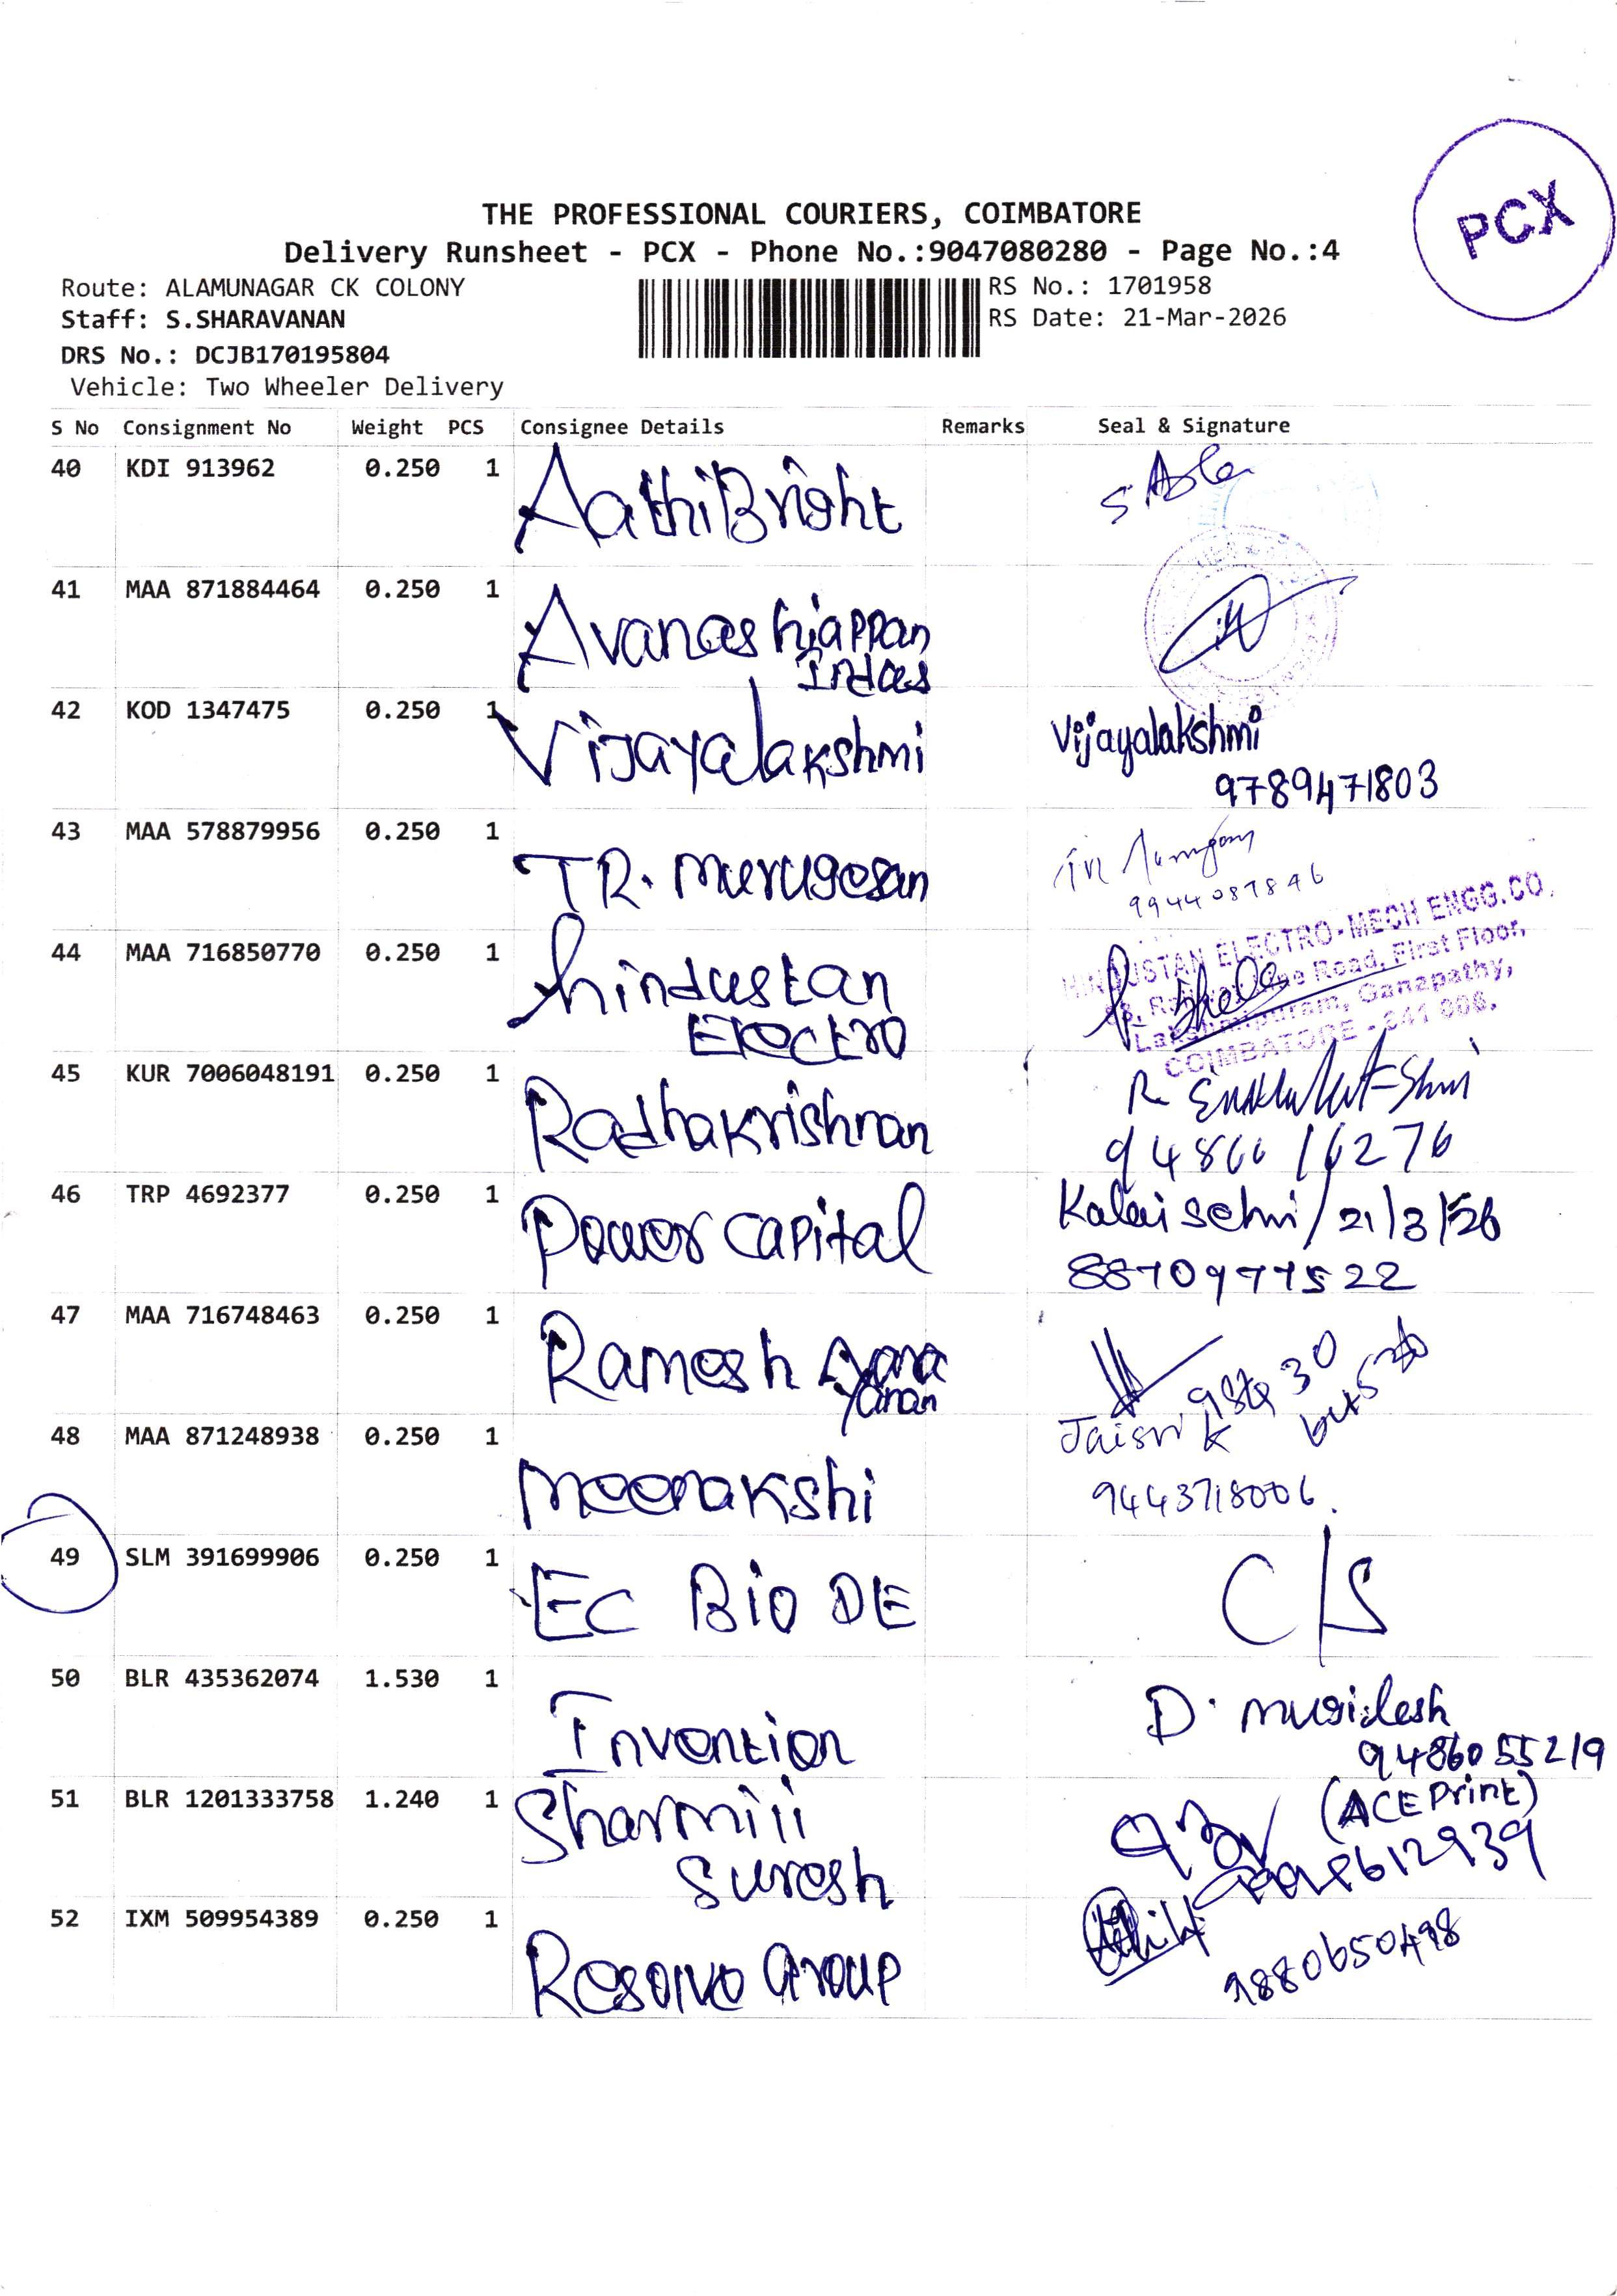 PCX
THE PROFESSIONAL COURIERS, COIMBATORE
Delivery Runsheet - PCX - Phone No.:9047080280 - Page No.:4
Route: ALAMUNAGAR CK COLONY
RS No.: 1701958
Staff: S.SHARAVANAN
RS Date: 21-Mar-2026
DRS No.: DCJB170195804
Vehicle: Two Wheeler Delivery
S No Consignment No Weight PCS Consignee Details Remarks Seal & Signature
40 KDI 913962 0.250 1 AathiBright
41 MAA 871884464 0.250 1 Avanashiappan
Indas
42 KOD 1347475 0.250 1 Vijayalakshmi Vijayalakshmi
9789471803
43 MAA 578879956 0.250 1 TR. Murugesan
9944087846
44 MAA 716850770 0.250 1 hindustan
Electro
HINDUSTAN ELECTRO-MECH ENGG.CO.
Road, First Floor,
Ganapathy,
COIMBATORE - 641 006.
45 KUR 7006048191 0.250 1 Radhakrishnan R
46 TRP 4692377 0.250 1 Power Capital Kalai selvi/21/3/26
8870977522
47 MAA 716748463 0.250 1 Ramesh
48 MAA 871248938 0.250 1 Meenakshi Jaisri K
9443718006.
49 SLM 391699906 0.250 1 EC BIO DE C/S
50 BLR 435362074 1.530 1 Invention D.
9486055219
(ACE Print)
51 BLR 1201333758 1.240 1 Sharmili
Suresh
52 IXM 509954389 0.250 1 Resolve Group
9880650498